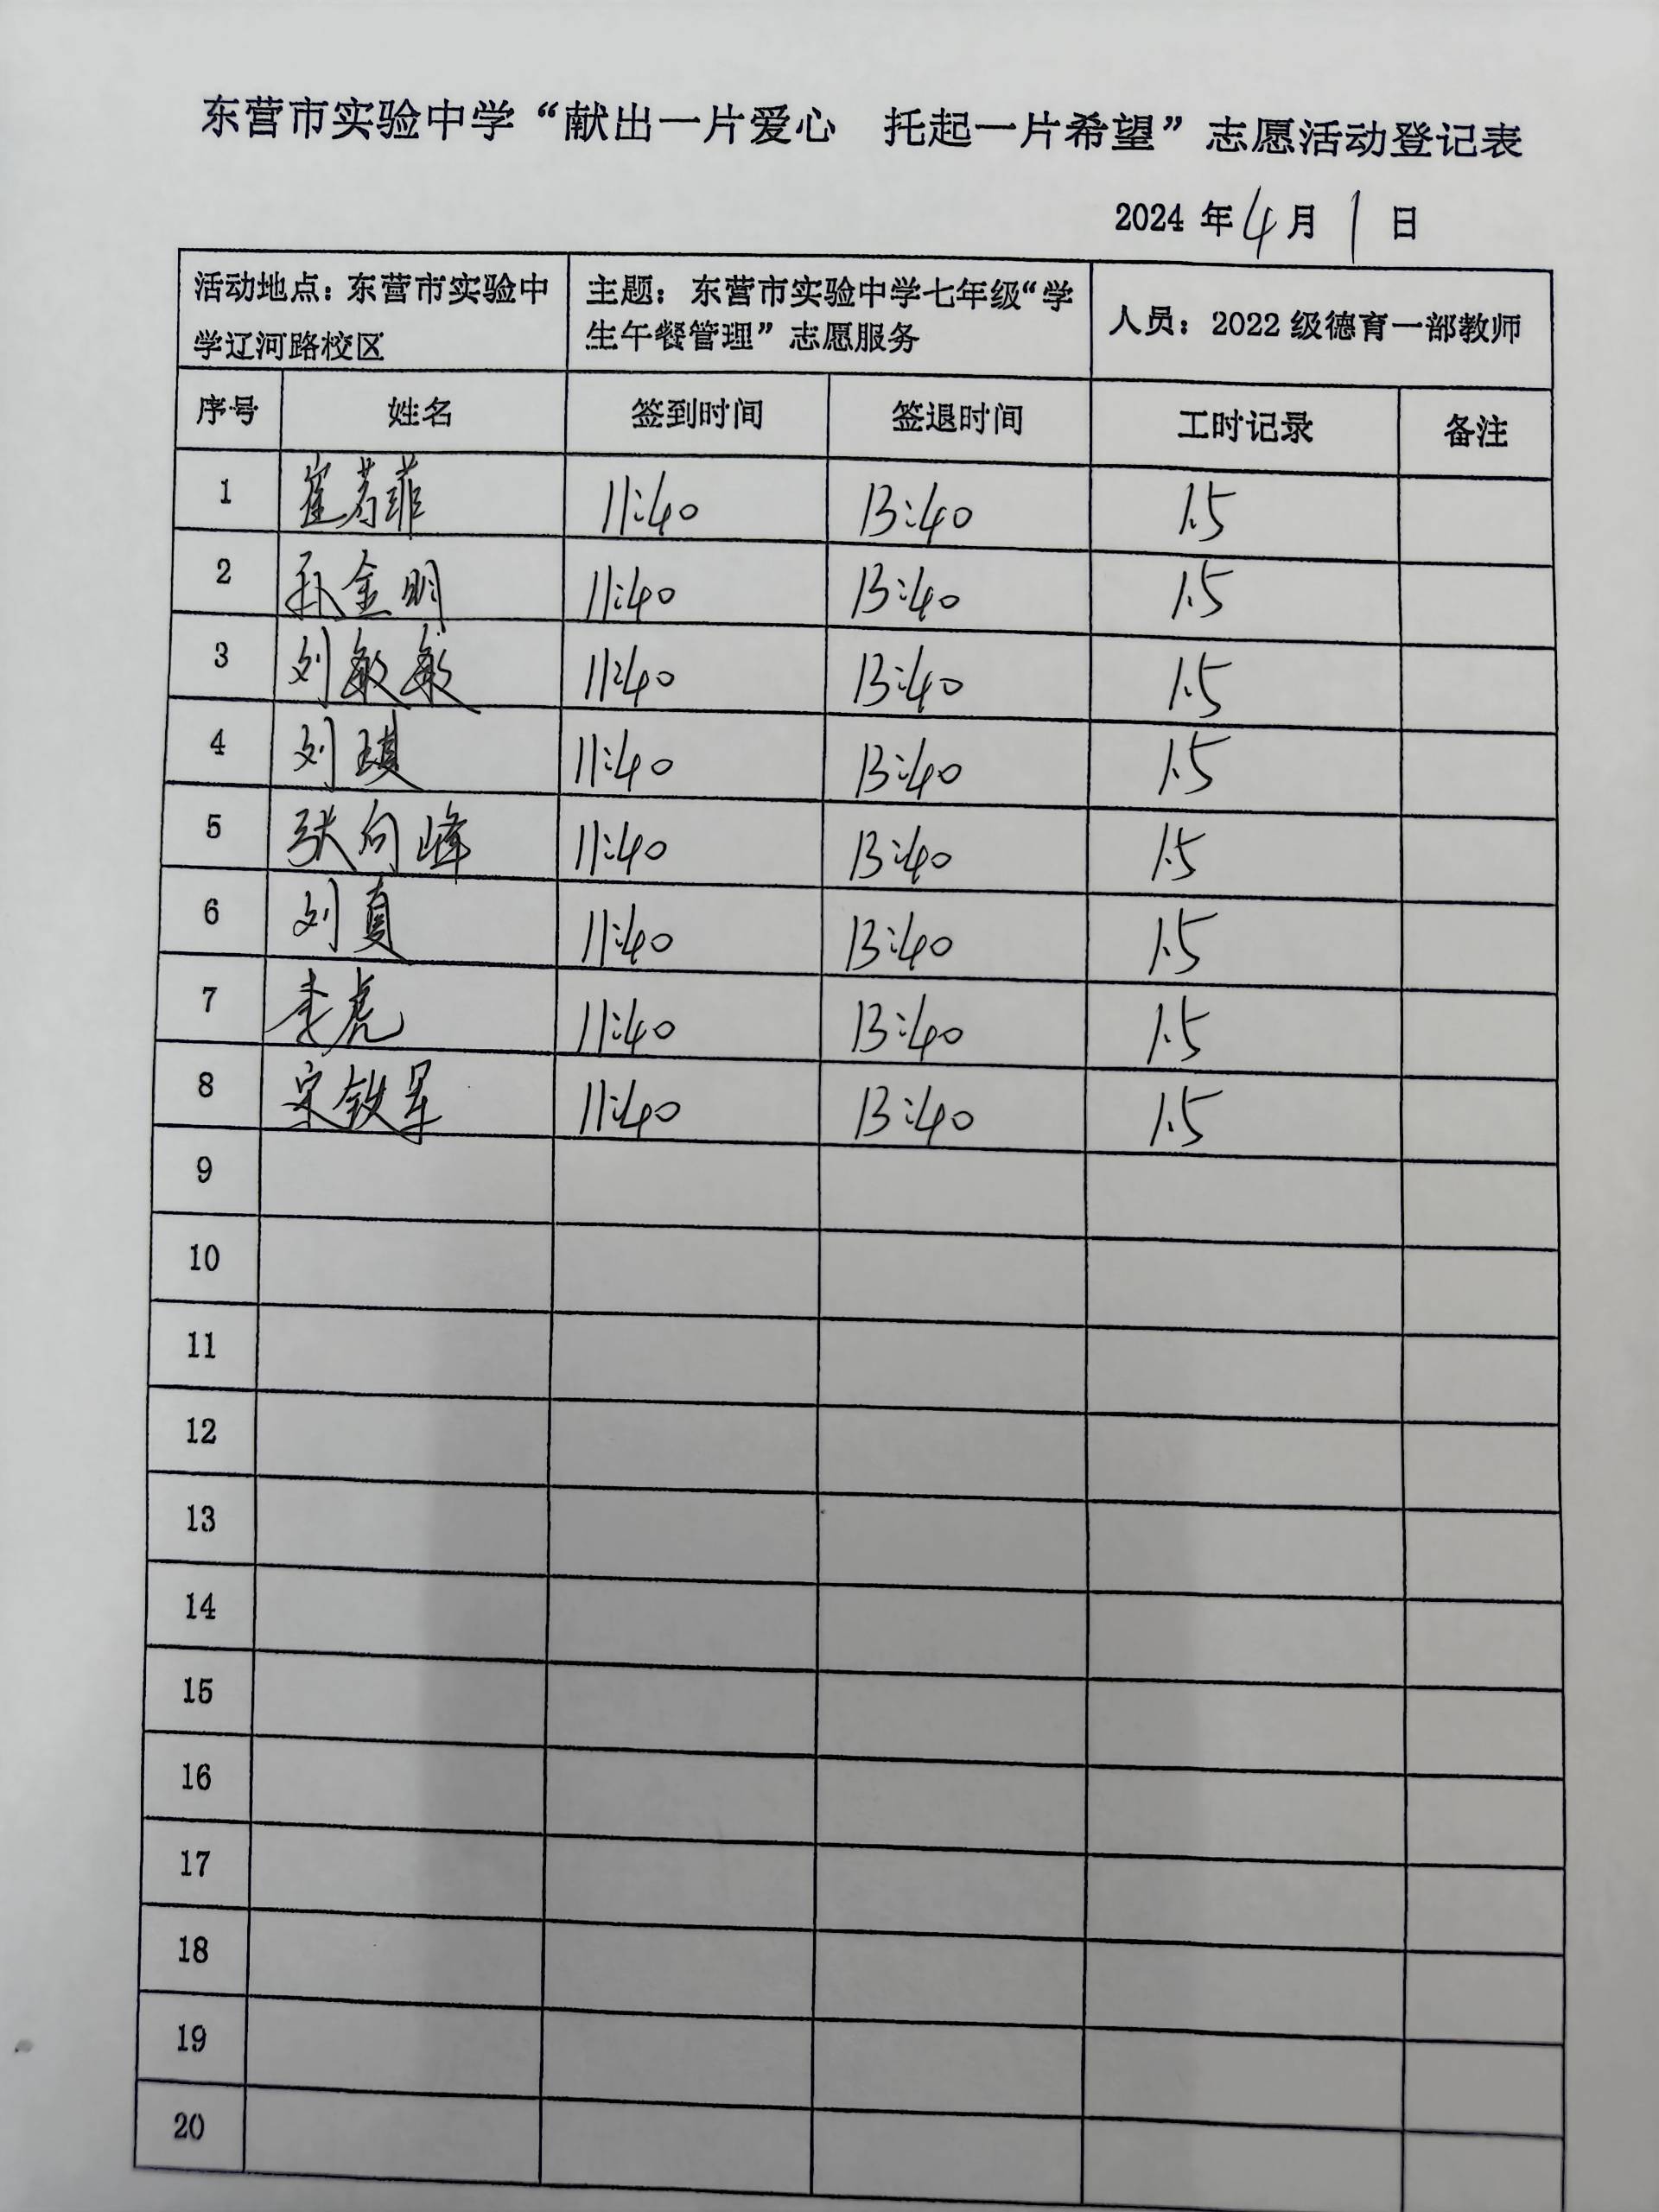 东营市实验中学“献出一片爱心 托起一片希望”志愿活动登记表
2024 年 4 月 1 日
活动地点：东营市实验中
学辽河路校区
主题：东营市实验中学七年级“学
生午餐管理”志愿服务
人员：2022 级德育一部教师
序号 姓名 签到时间 签退时间 工时记录 备注
1 崔若菲 11:40 13:40 1.5
2 孙金明 11:40 13:40 1.5
3 刘敏敏 11:40 13:40 1.5
4 刘琪 11:40 13:40 1.5
5 张向峰 11:40 13:40 1.5
6 刘真 11:40 13:40 1.5
7 李虎 11:40 13:40 1.5
8 宋铁军 11:40 13:40 1.5
9
10
11
12
13
14
15
16
17
18
19
20